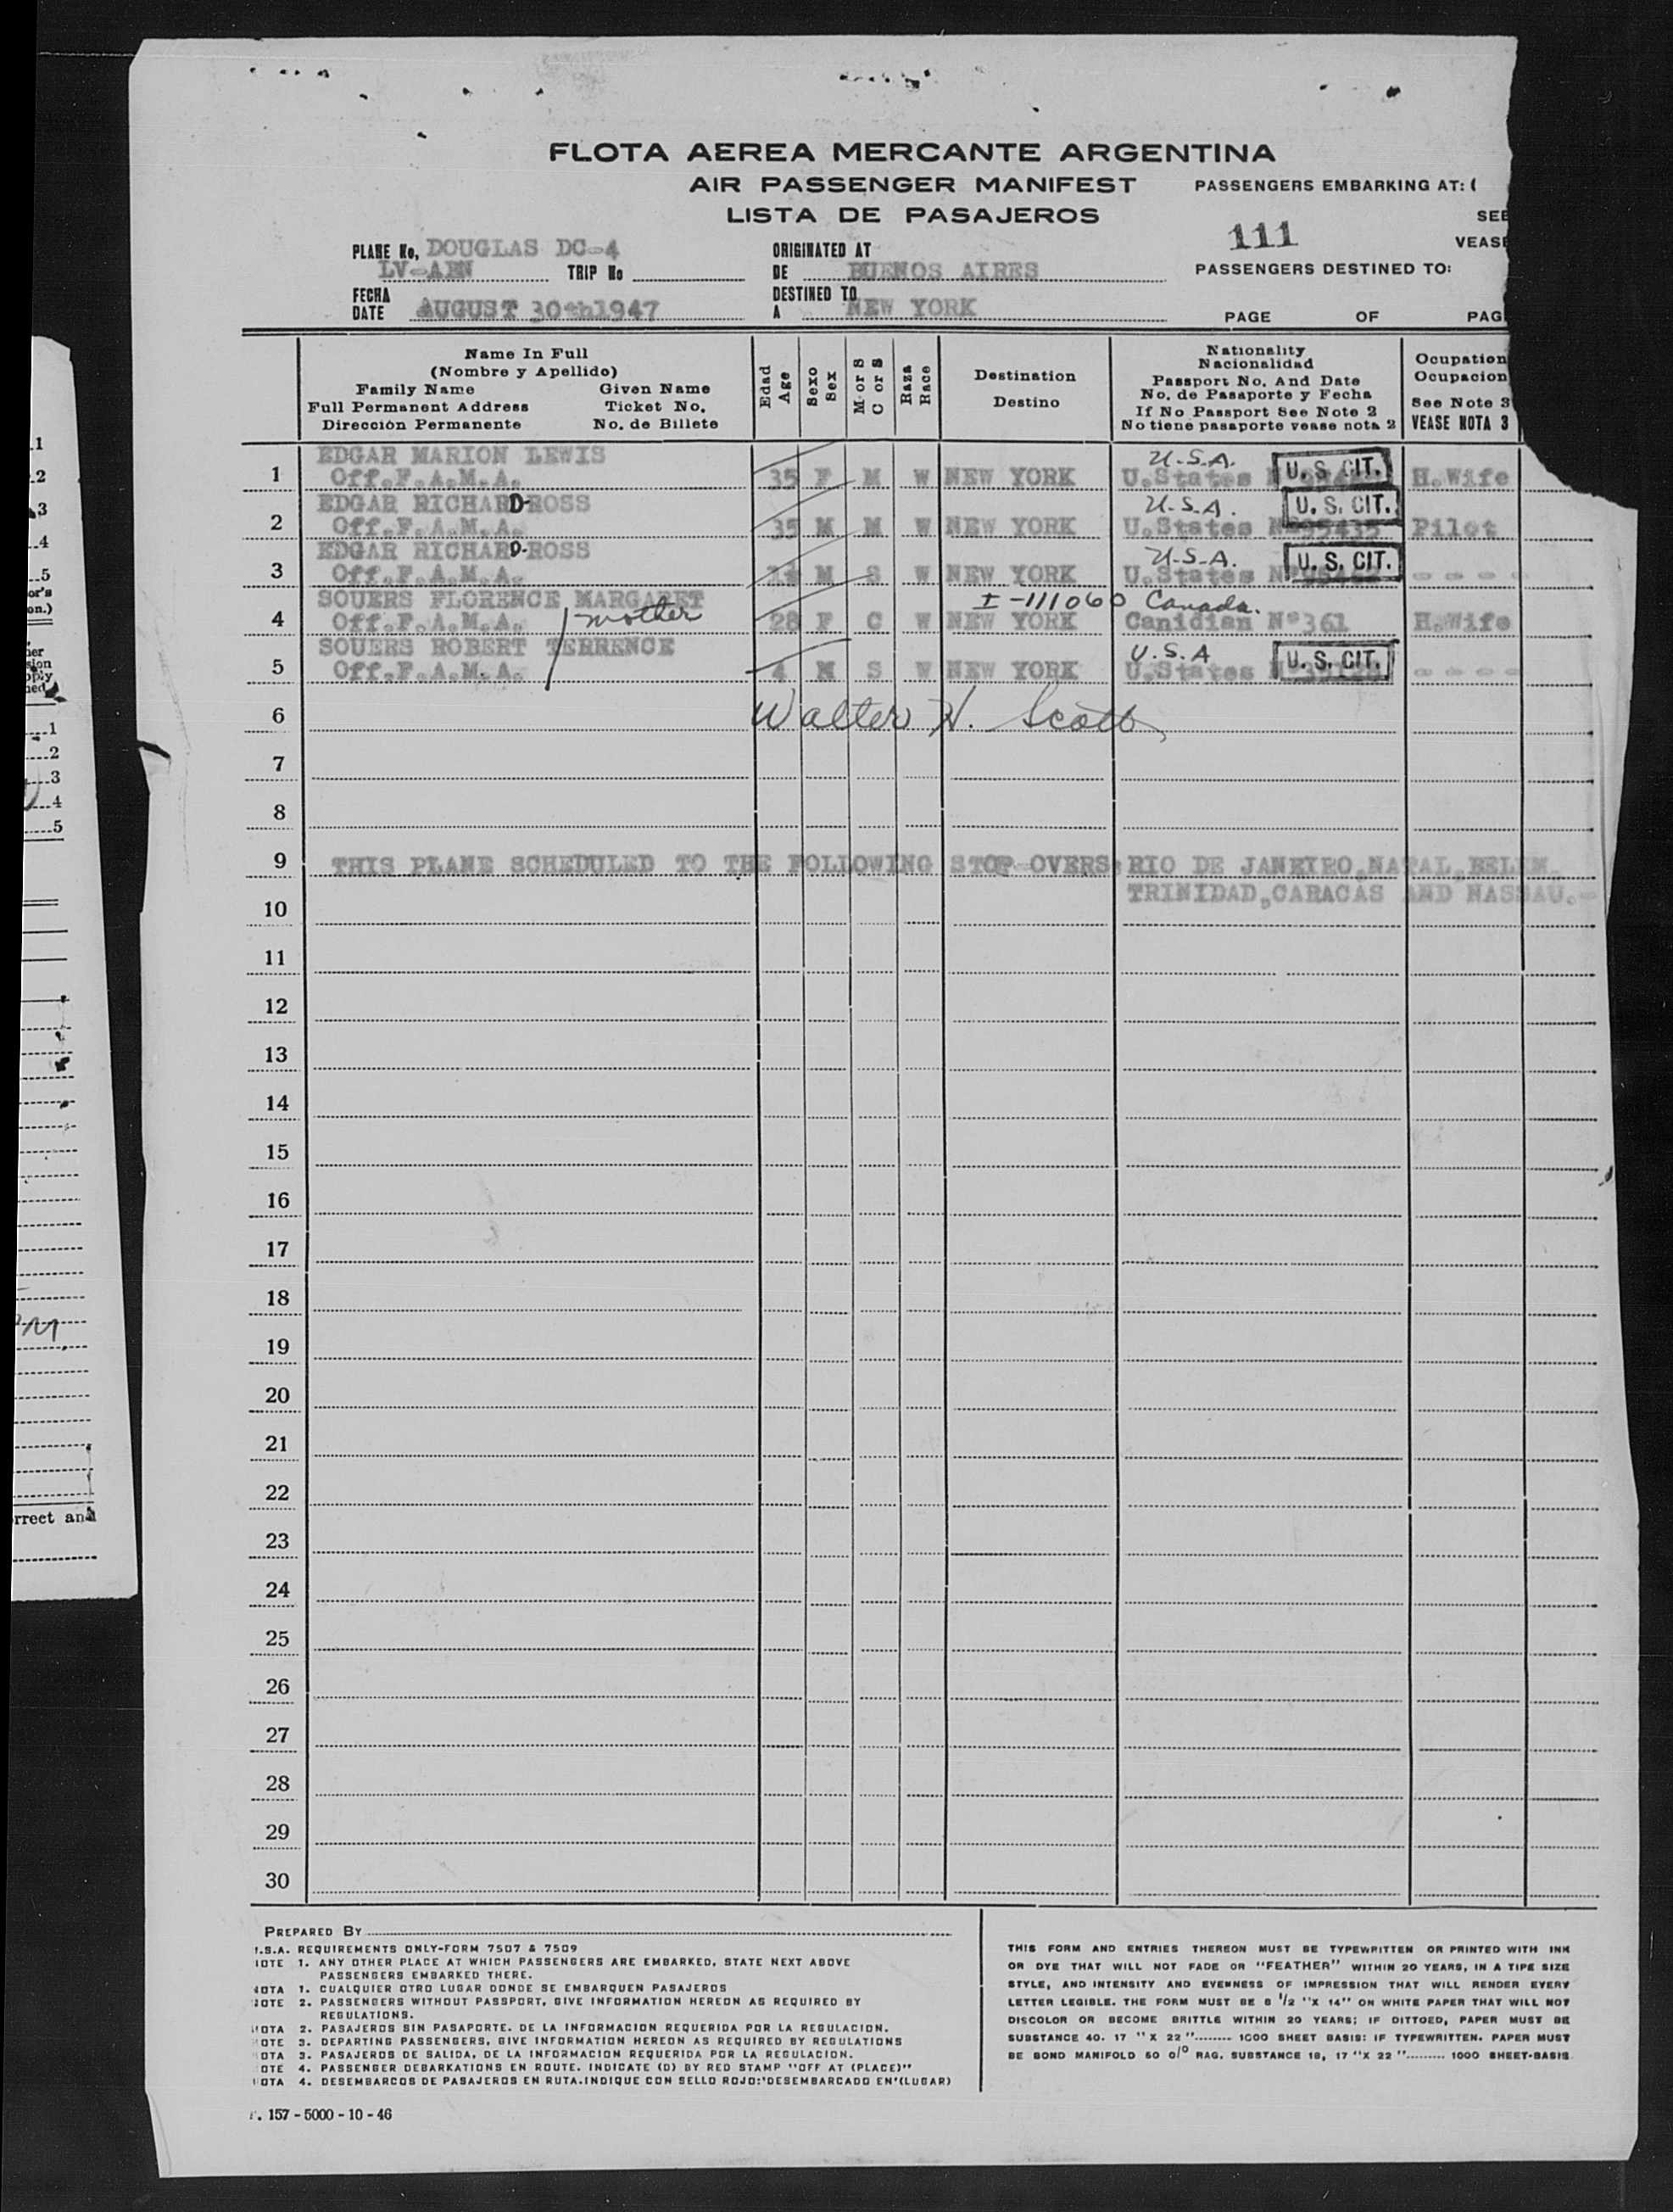 FLOTA AEREA MERCANTE ARGENTINA
AIR PASSENGER MANIFEST
LISTA DE PASAJEROS
PASSENGERS EMBARKING AT: (
SEE
111
VEASE
PASSENGERS DESTINED TO:
PAGE OF PAG
PLANE No. DOUGLAS DC-4
LV-ABN TRIP No
FECHA
DATE AUGUST 30th1947
ORIGINATED AT
DE BUENOS AIRES
DESTINED TO
A NEW YORK
Name In Full
(Nombre y Apellido)
Family Name Given Name
Full Permanent Address Ticket No.
Dirección Permanente No. de Billete
Edad
Age
Sexo
Sex
M or S
C or S
Raza
Race
Destination
Destino
Nationality
Nacionalidad
Passport No. And Date
No. de Pasaporte y Fecha
If No Passport See Note 2
No tiene pasaporte vease nota 2
Ocupation
Ocupacion
See Note 3
VEASE NOTA 3
EDGAR MARION LEWIS U.S.A.
1 Off.F.A.M.A. 35 F M W NEW YORK U.States U. S. CIT. H.Wife
EDGAR RICHARD-ROSS U.S.A. U. S. CIT.
2 Off.F.A.M.A. 35 M M W NEW YORK U.States Nº55435 Pilot
EDGAR RICHARD-ROSS U.S.A.
3 Off.F.A.M.A. M S W NEW YORK U.States U. S. CIT. - - - -
SOUERS FLORENCE MARGARET I-111060 Canada.
4 Off.F.A.M.A. mother 28 F C W NEW YORK Canidian Nº361 H.Wife
SOUERS ROBERT TERRENCE U.S.A
5 Off.F.A.M.A. 4 M S W NEW YORK U.States U. S. CIT. - - - -
6 Walter H. Scott
7
8
9 THIS PLANE SCHEDULED TO THE FOLLOWING STOP-OVERS: RIO DE JANEIRO,NATAL,BELEM.
10 TRINIDAD,CARACAS AND NASSAU.-
11
12
13
14
15
16
17
18
19
20
21
22
23
24
25
26
27
28
29
30
PREPARED BY
.S.A. REQUIREMENTS ONLY-FORM 7507 & 7509
OTE 1. ANY OTHER PLACE AT WHICH PASSENGERS ARE EMBARKED, STATE NEXT ABOVE
PASSENGERS EMBARKED THERE.
OTA 1. CUALQUIER OTRO LUGAR DONDE SE EMBARQUEN PASAJEROS
OTE 2. PASSENGERS WITHOUT PASSPORT, GIVE INFORMATION HEREON AS REQUIRED BY
REGULATIONS.
OTA 2. PASAJEROS SIN PASAPORTE. DE LA INFORMACION REQUERIDA POR LA REGULACION.
OTE 3. DEPARTING PASSENGERS, GIVE INFORMATION HEREON AS REQUIRED BY REGULATIONS
OTA 3. PASAJEROS DE SALIDA, DE LA INFORMACION REQUERIDA POR LA REGULACION.
OTE 4. PASSENGER DEBARKATIONS EN ROUTE. INDICATE (D) BY RED STAMP "OFF AT (PLACE)"
OTA 4. DESEMBARCOS DE PASAJEROS EN RUTA.INDIQUE CON SELLO ROJO:'DESEMBARCADO EN'(LUGAR)
THIS FORM AND ENTRIES THEREON MUST BE TYPEWRITTEN OR PRINTED WITH INK
OR DYE THAT WILL NOT FADE OR "FEATHER" WITHIN 20 YEARS, IN A TIPE SIZE
STYLE, AND INTENSITY AND EVENNESS OF IMPRESSION THAT WILL RENDER EVERY
LETTER LEGIBLE. THE FORM MUST BE 8 1/2 "X 14" ON WHITE PAPER THAT WILL NOT
DISCOLOR OR BECOME BRITTLE WITHIN 20 YEARS; IF DITTOED, PAPER MUST BE
SUBSTANCE 40. 17 " X 22 "......... 1000 SHEET BASIS: IF TYPEWRITTEN. PAPER MUST
BE BOND MANIFOLD 50 0/0 RAG. SUBSTANCE 18, 17 "X 22 "......... 1000 SHEET-BASIS
F. 157 - 5000 - 10 - 46
1
2
3
4
5
or's
on.)
1
2
3
4
5
rrect and